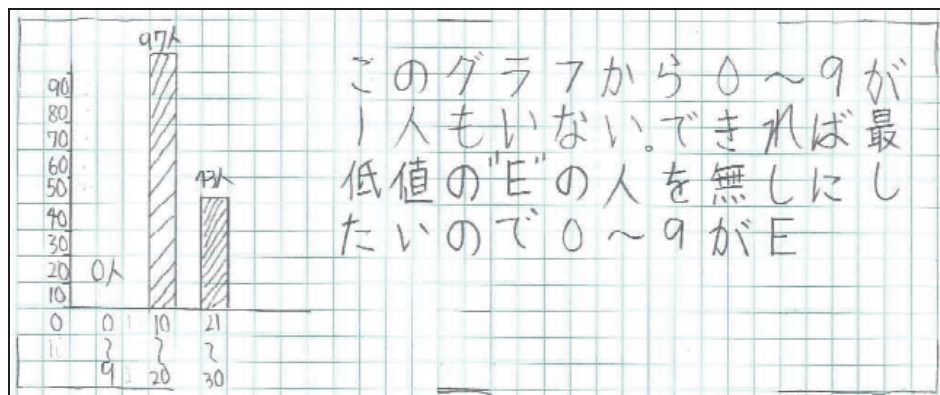 97人
90
80
70
60
50
40
30
20
10
0
0人
43人
0〜9
10〜20
21〜30
このグラフから0〜9が
1人もいない。できれば最
低値の"E"の人を無しにし
たいので0〜9がE